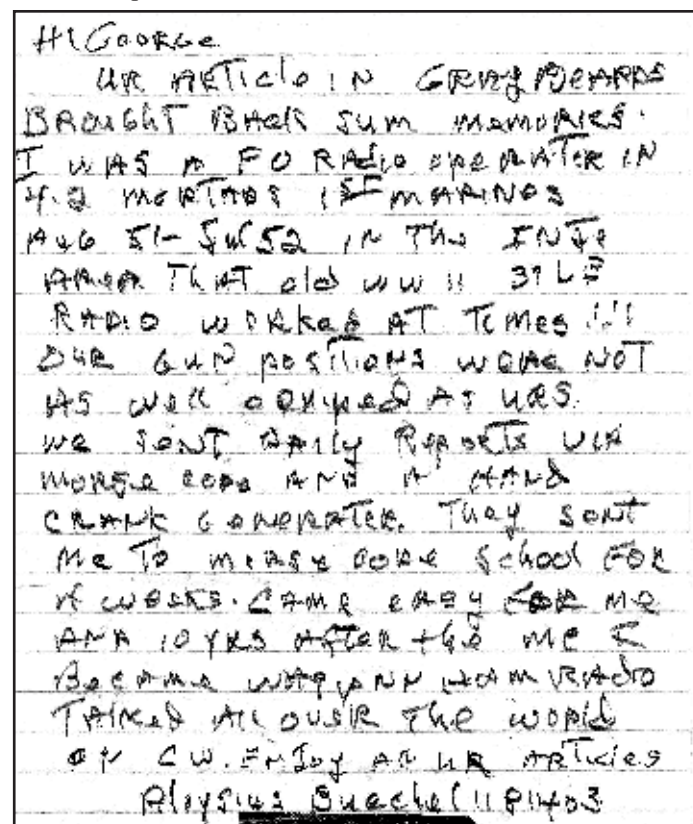 HI GEORGE
UR ARTICLE IN GRAYBEARDS
BROUGHT BACK SUM MEMORIES.
I WAS A FO RADIO OPERATER IN
4.2 MORTARS 1ST MARINES
AUG 51 - JUL 52 IN THE
AREA THAT OLD WW II
RADIO WORKED AT TIMES !!!
OUR GUN POSITIONS WERE NOT
AS WELL AS URS.
WE SENT DAILY REPORTS VIA
MORSE CODE AND A HAND
CRANK GENERATER. THEY SENT
ME TO MORSE CODE SCHOOL FOR
WEEKS. CAME EASY FOR ME
AND 10 YRS AFTER ME
BECAME HAM RADIO
TALKED ALL OVER THE WORLD
ON CW. ENJOY UR ARTICLES
Aloysius Buechel